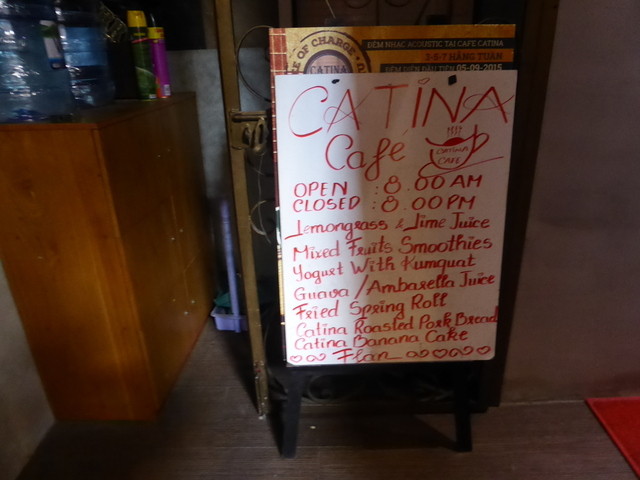 E OF CHARGE
CATINA
ĐÊM NHẠC ACOUSTIC TẠI CAFE CATINA
3-5-7 HÀNG TUẦN
ĐÊM DIỄN ĐẦU TIÊN 05-09-2015
CATINA
Café
CATINA
CAFÉ
OPEN : 8.00 AM
CLOSED : 8.00 PM
Lemongrass & Lime Juice
Mixed Fruits Smoothies
Yogurt With Kumquat
Guava / Ambarella Juice
Fried Spring Roll
Catina Roasted Pork Bread
Catina Banana Cake
Flan